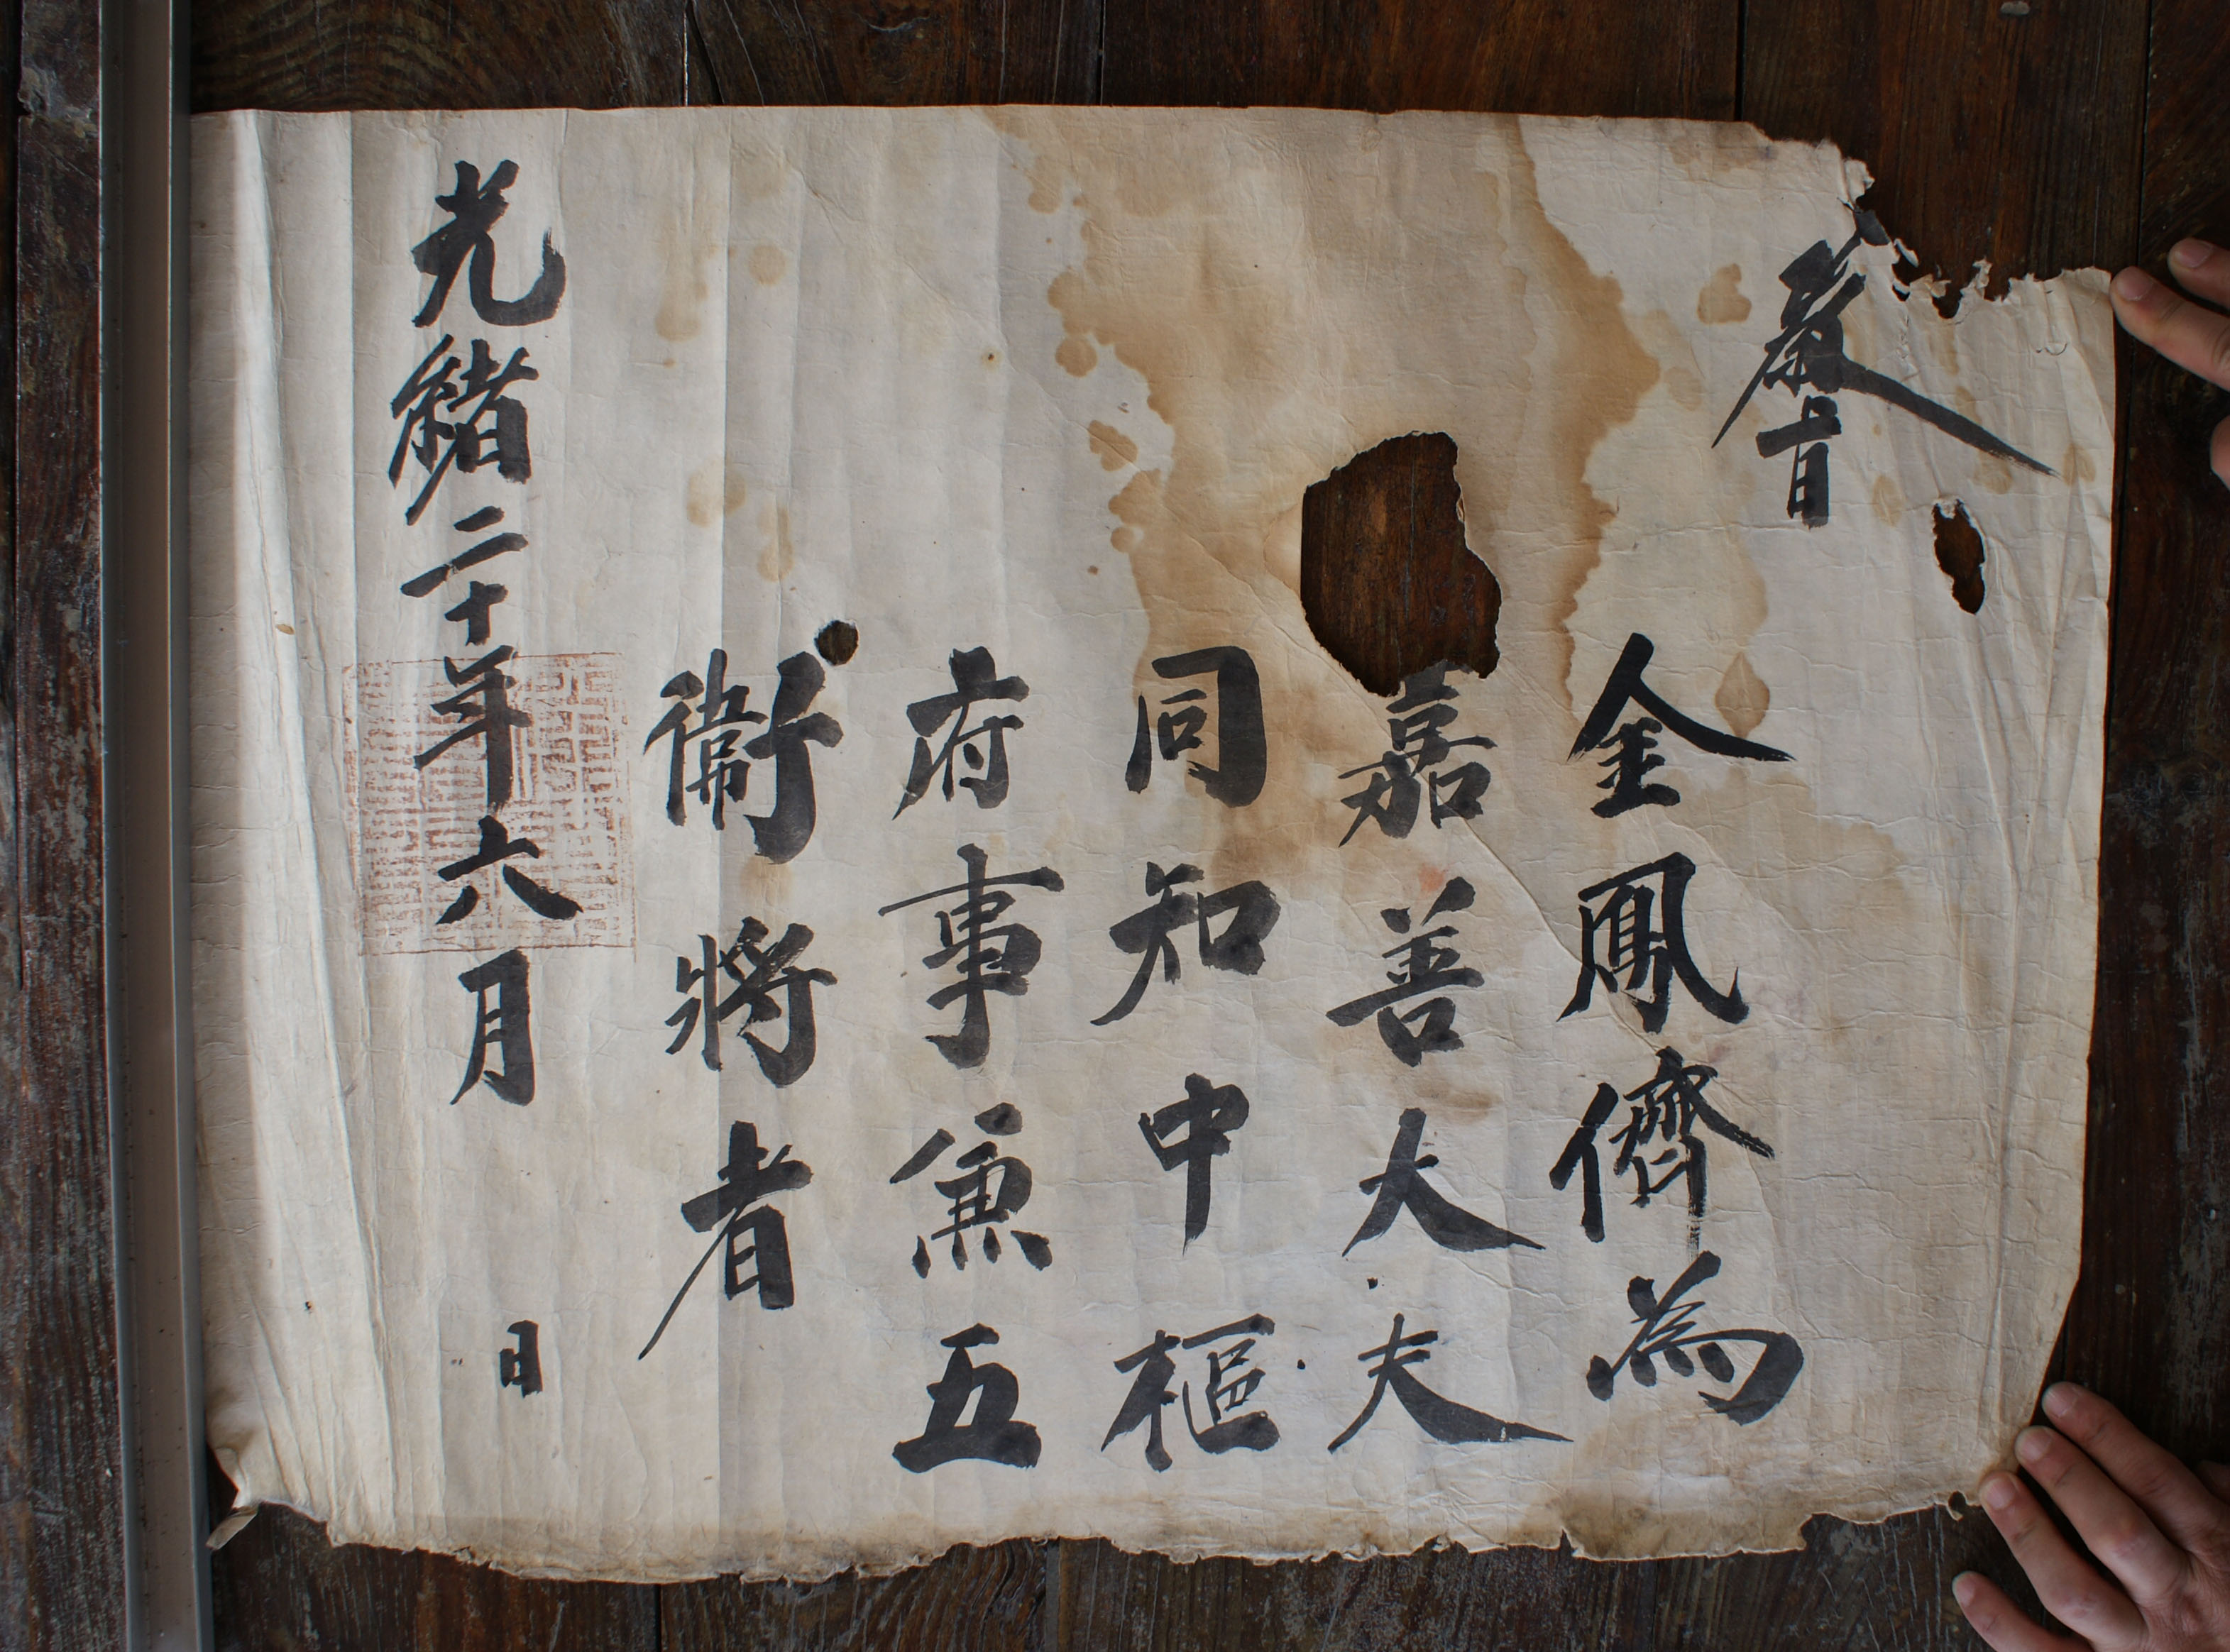 教旨
金鳳儕為
嘉善大夫
同知中樞
府事兼五
衛將者
光緒二十年六月 日